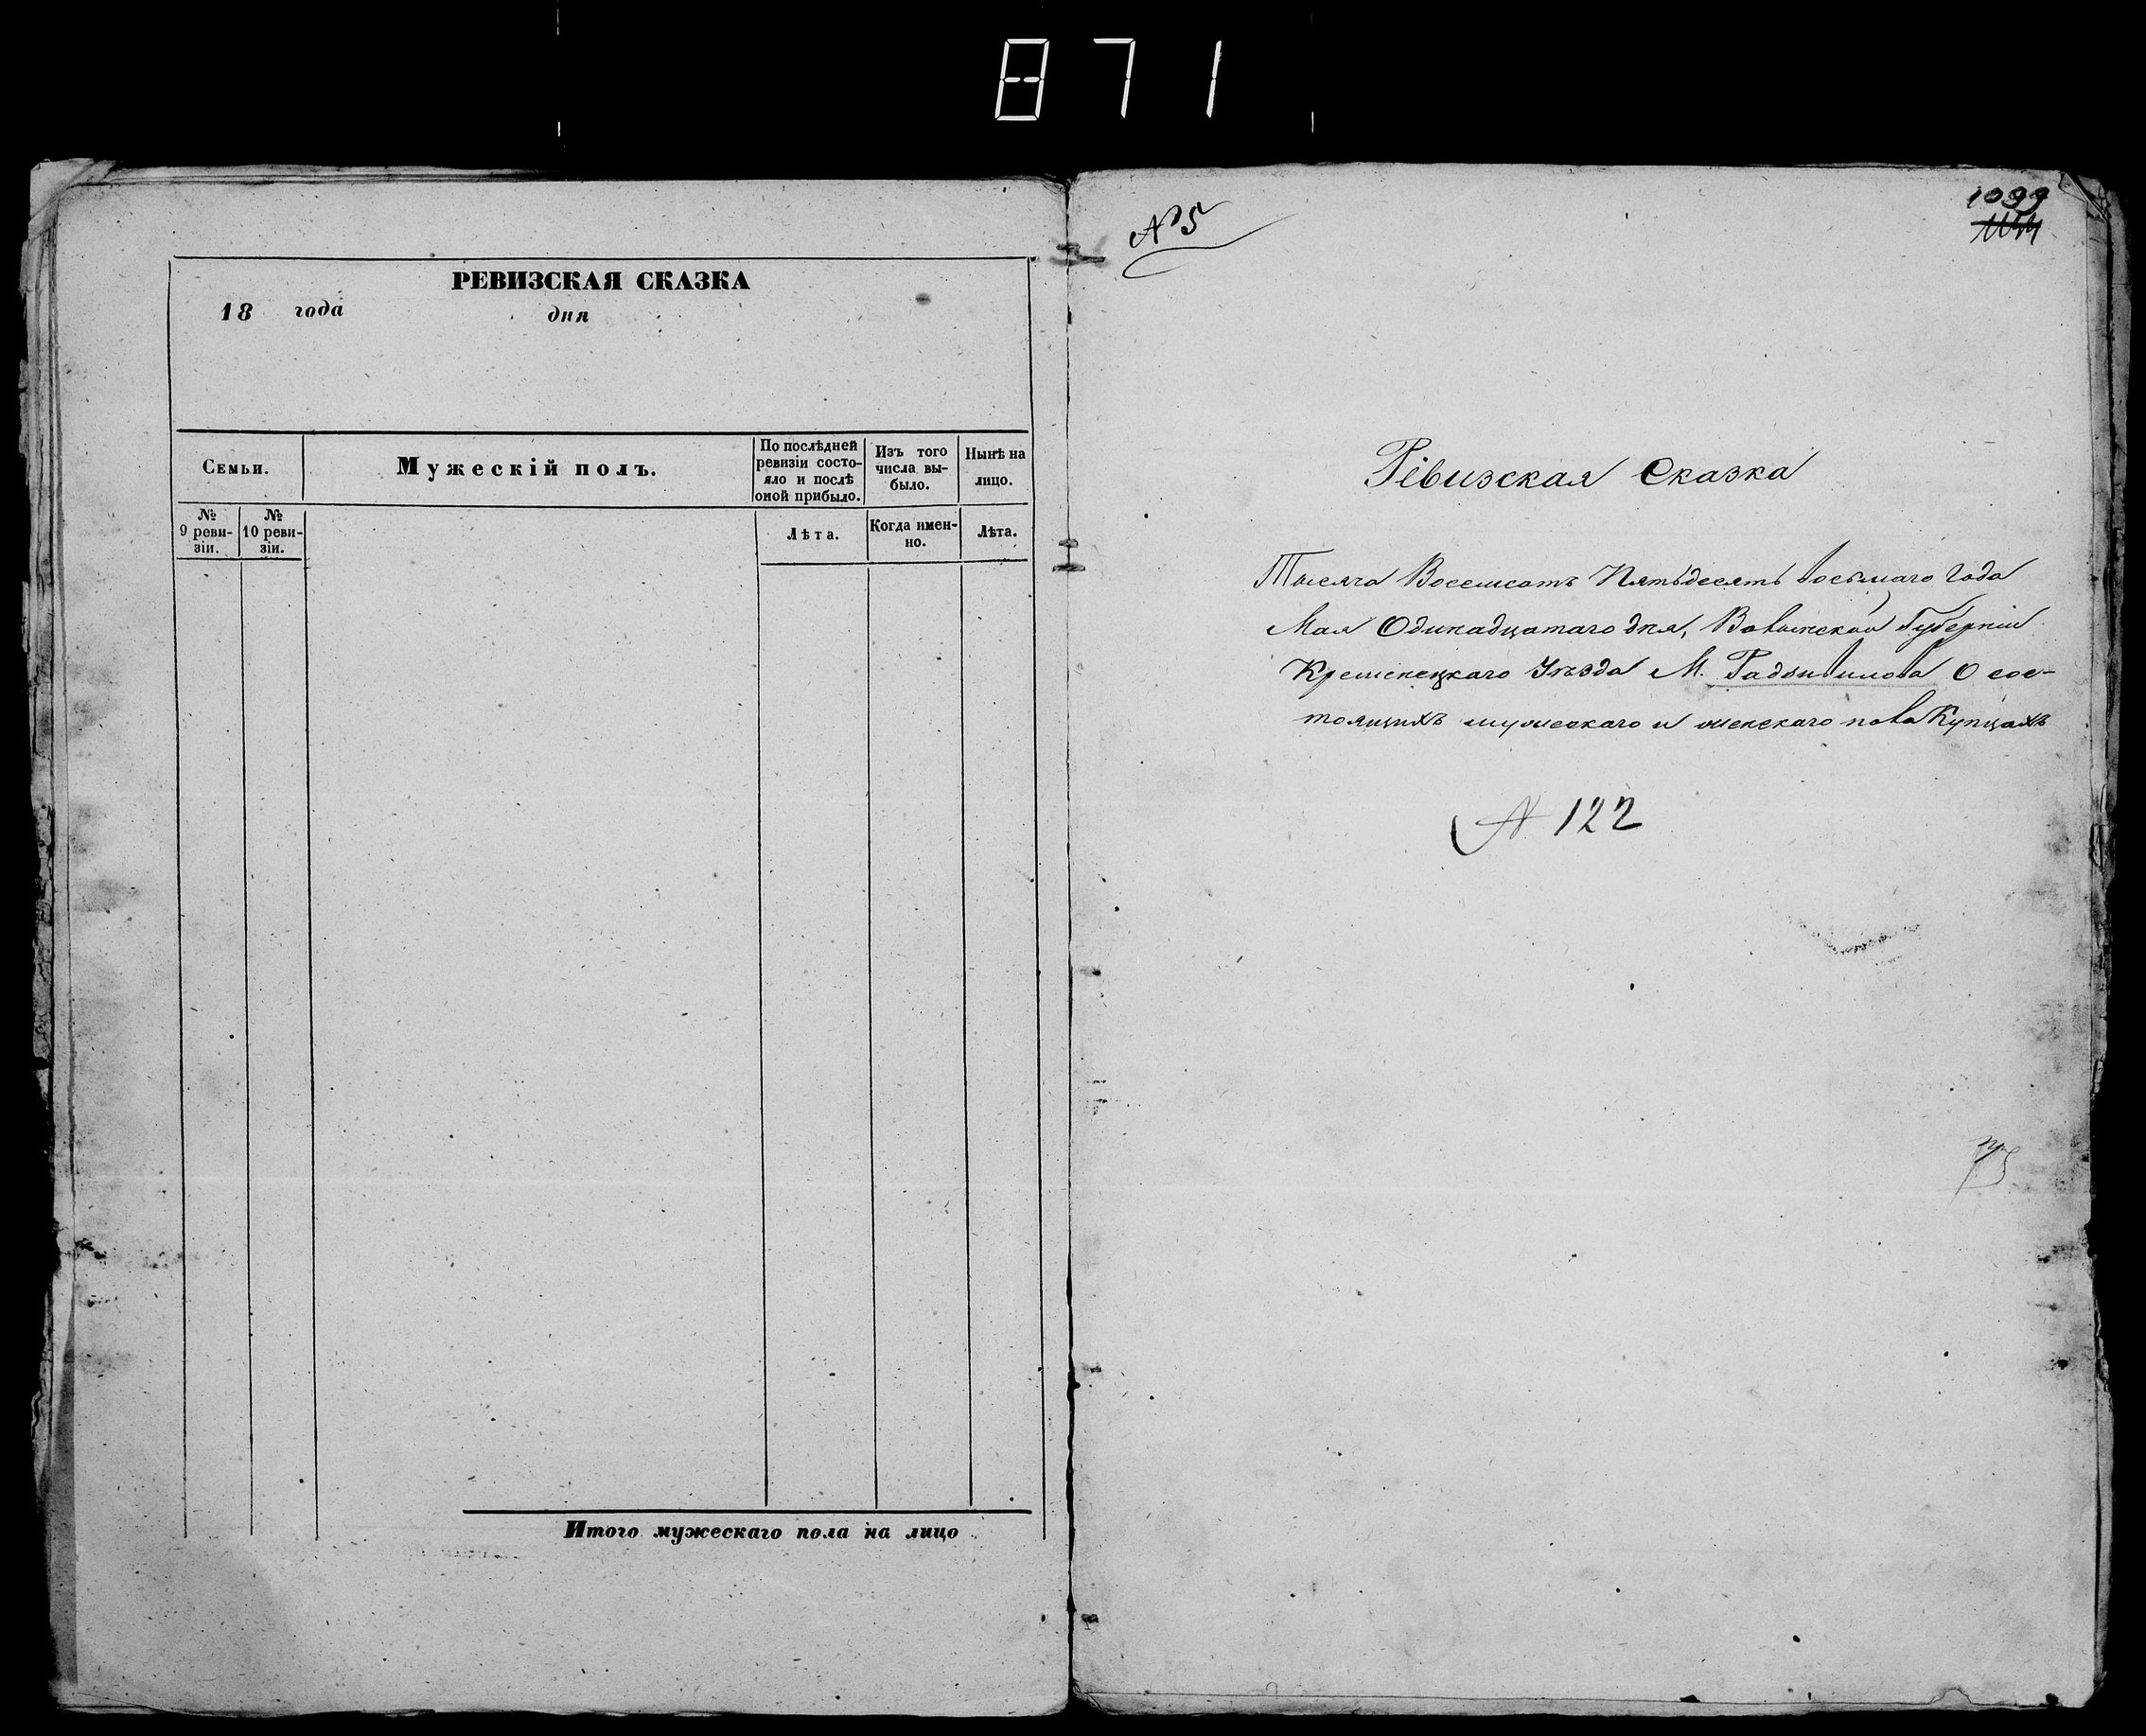 871
РЕВИЗСКАЯ СКАЗКА
18 года дня
Семьи.
Мужескій полъ.
По послѣдней
ревизіи состо-
яло и послѣ
оной прибыло.
Изъ того
числа вы-
было.
Нынѣ на
лицо.
№
9 реви-
зіи.
№
10 реви-
зіи.
Лѣта.
Когда имен-
но.
Лѣта.
Итого мужескаго пола на лицо
№ 5
1099
Ревизская Сказка
Тысяча Восемсотъ Пятьдесятъ восьмаго года
Мая Одинадцатаго дня, Волынской Губерніи
Кременецкаго Уѣзда М. Радзивилова О сос-
тоящихъ мужескаго и женскаго пола Купцахъ
№ 122